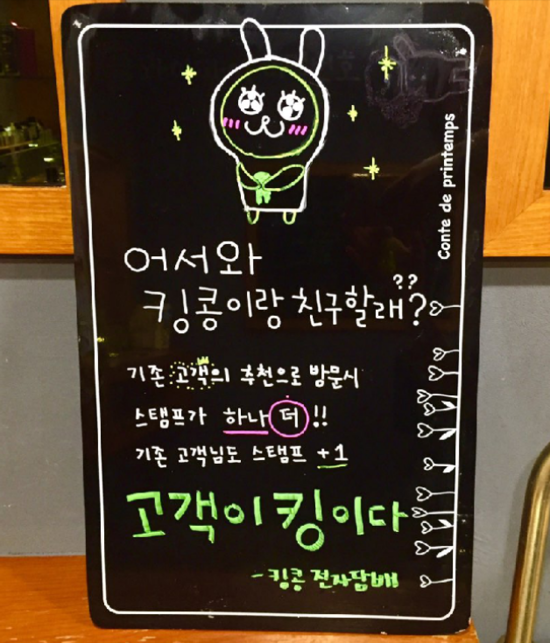 Conte de printemps
어서와
킹콩이랑 친구할래???
기존 고객의 추천으로 방문시
스탬프가 하나 더!!
기존 고객님도 스탬프 +1
고객이 킹이다
-킹콩 전자담배